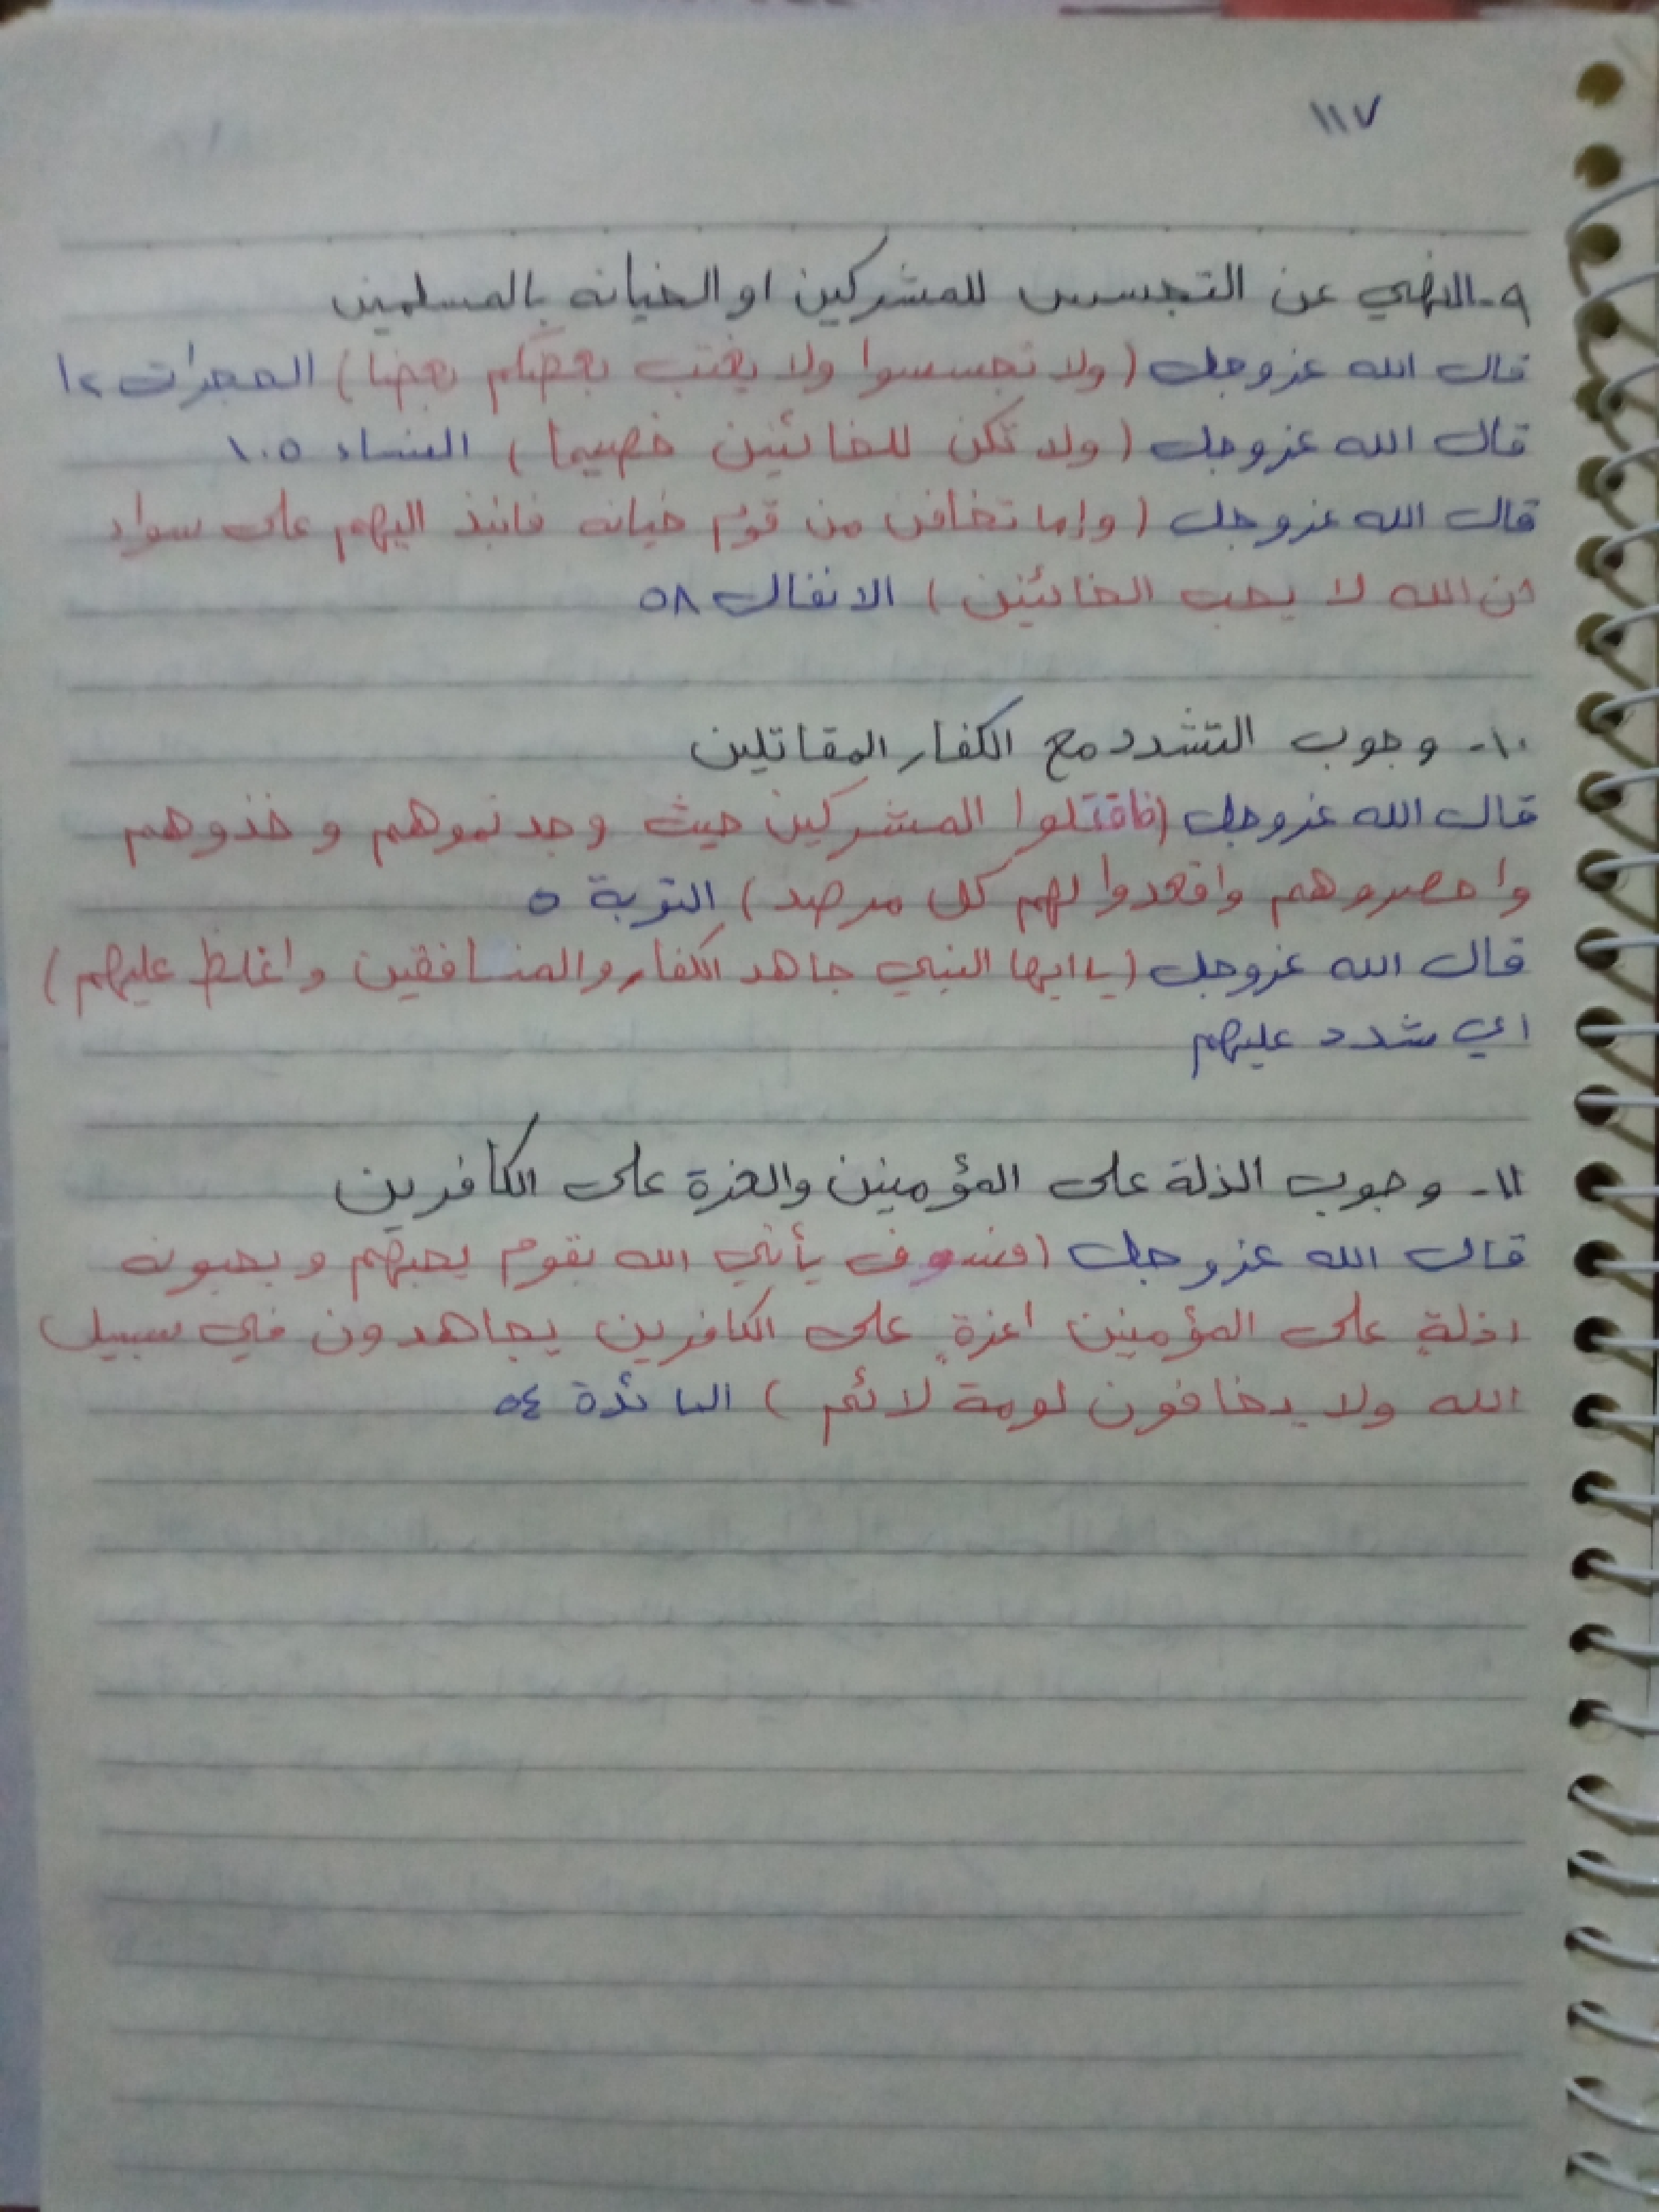 ١١٧
٩- النهي عن التجسس للمشركين او الخيانه بالمسلمين
قال الله عزوجل (ولا تجسسوا ولا يغتب بعضكم بعضا) الحجرات ١٢
قال الله عزوجل (ولا تكن للخائنين خصيما) النساء ١٠٥
قال الله عزوجل (وإما تخافن من قوم خيانه فانبذ اليهم على سواء
ان الله لا يحب الخائنين) الانفال ٥٨
١٠- وجوب التشدد مع الكفار المقاتلين
قال الله عزوجل (فاقتلوا المشركين حيث وجدتموهم وخذوهم
واحصروهم واقعدوا لهم كل مرصد) التوبة ٥
قال الله عزوجل (يا ايها النبي جاهد الكفار والمنافقين واغلظ عليهم)
اي شدد عليهم
١١- وجوب الذلة على المؤمنين والعزة على الكافرين
قال الله عزوجل (فسوف يأتي الله بقوم يحبهم ويحبونه
اذلةٍ على المؤمنين اعزةٍ على الكافرين يجاهدون في سبيل
الله ولا يخافون لومة لائم) المائدة ٥٤